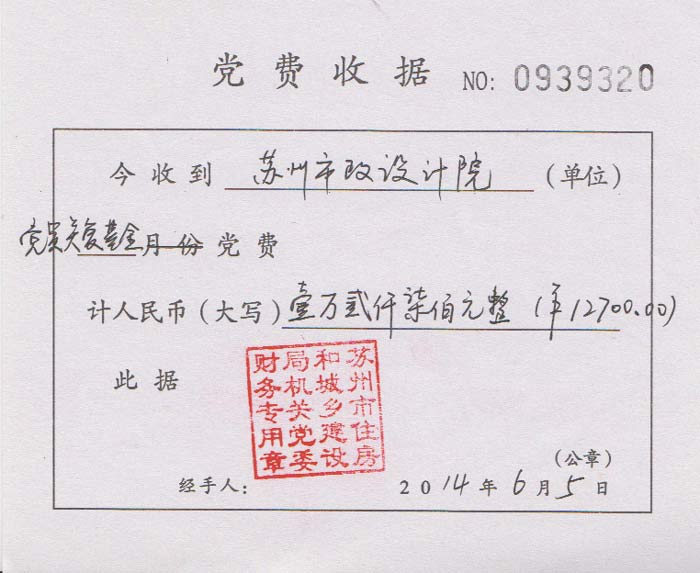 党费收据 NO: 0939320
今收到 苏州市政设计院 (单位)
党员关爱基金月份党费
计人民币(大写)壹万贰仟柒佰元整 (¥12700.00)
此据
苏州市住房
和城乡建设
局机关党委
财务专用章
(公章)
经手人: 2014年6月5日